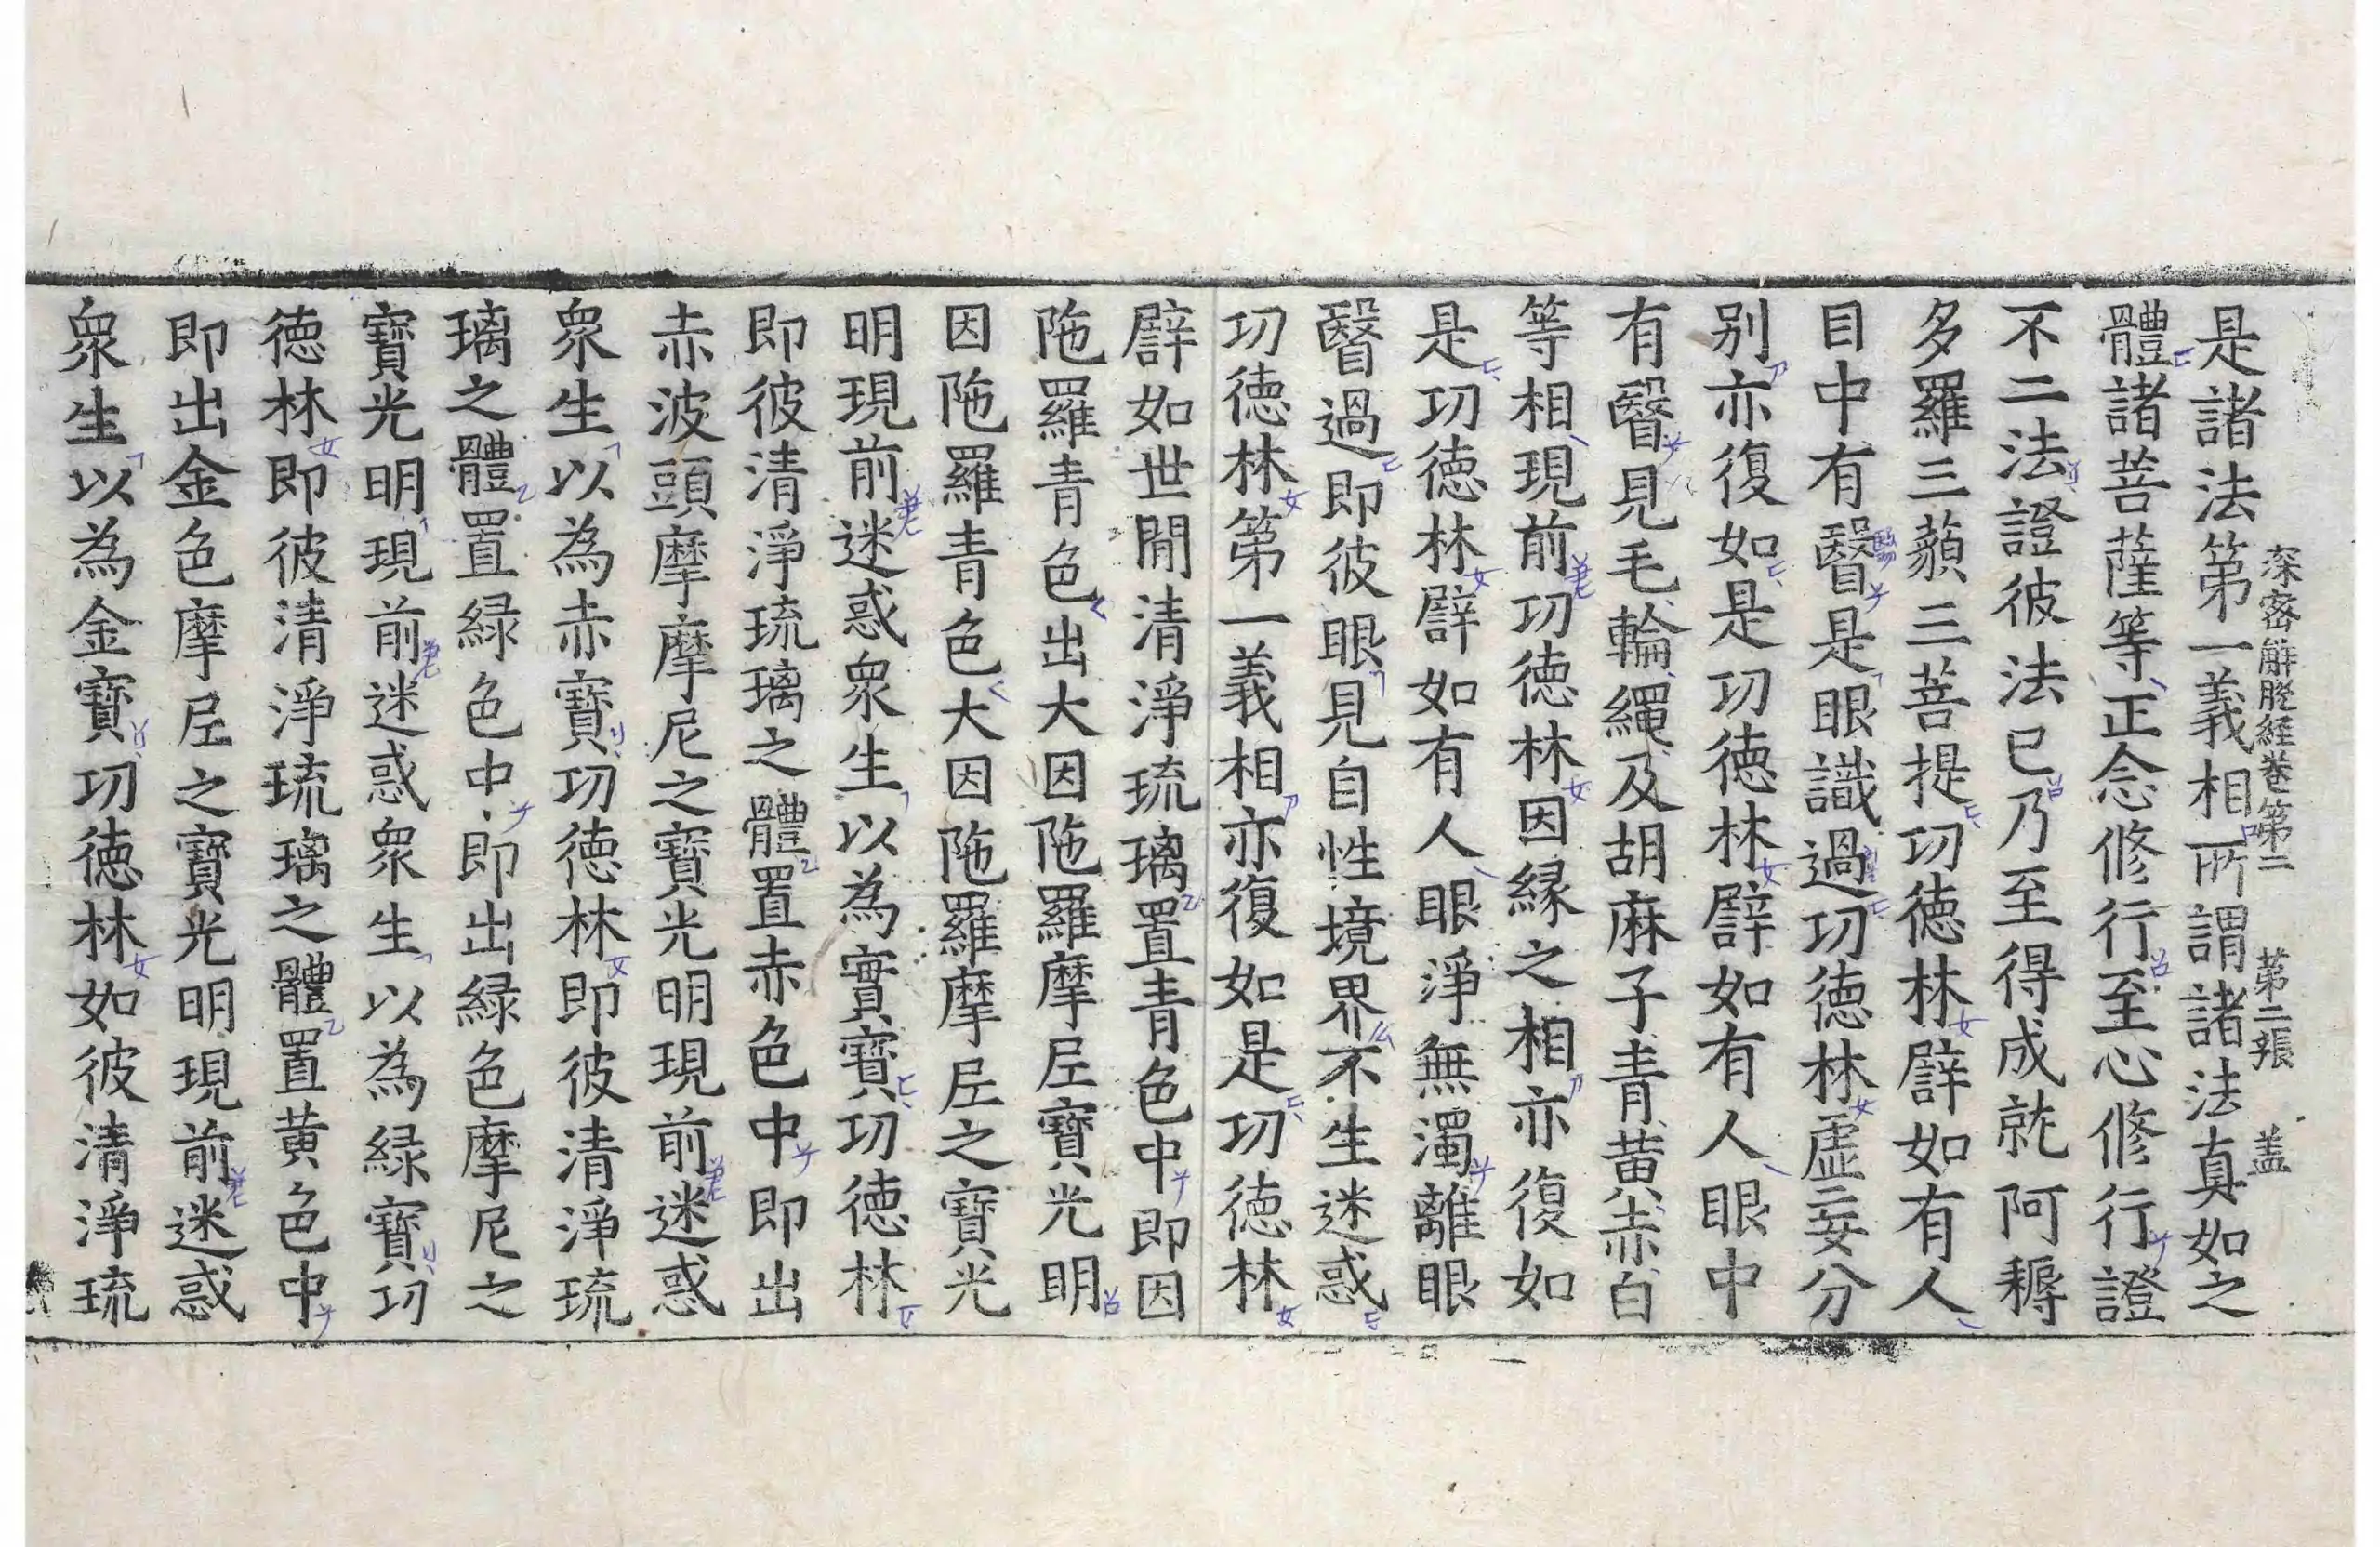 深密解脫経卷第二 第二張 盖
是諸法第一義相所謂諸法真如之
體諸菩薩等正念修行至心修行證
不二法證彼法已乃至得成就阿耨
多羅三藐三菩提㓛德林譬如有人
目中有瞖是眼識過㓛德林虛妄分
别亦復如是㓛德林譬如有人眼中
有瞖見毛輪繩及胡麻子青黄赤白
等相現前㓛德林因緣之相亦復如
是㓛德林譬如有人眼淨無濁離眼
瞖過即彼眼見自性境界不生迷惑
㓛德林第一義相亦復如是㓛德林
譬如世間清淨琉璃置青色中即因
陁羅青色出大因陁羅摩尼寶光明
因陁羅青色大因陁羅摩尼之寶光
明現前迷惑衆生以為實寶㓛德林
即彼清淨琉璃之體置赤色中即出
赤波頭摩摩尼之寶光明現前迷惑
衆生以為赤寶㓛德林即彼清淨琉
璃之體置緑色中即出緑色摩尼之
寶光明現前迷惑衆生以為緑寶㓛
德林即彼清淨琉璃之體置黄色中
即出金色摩尼之寶光明現前迷惑
衆生以為金寶㓛德林如彼清淨琉